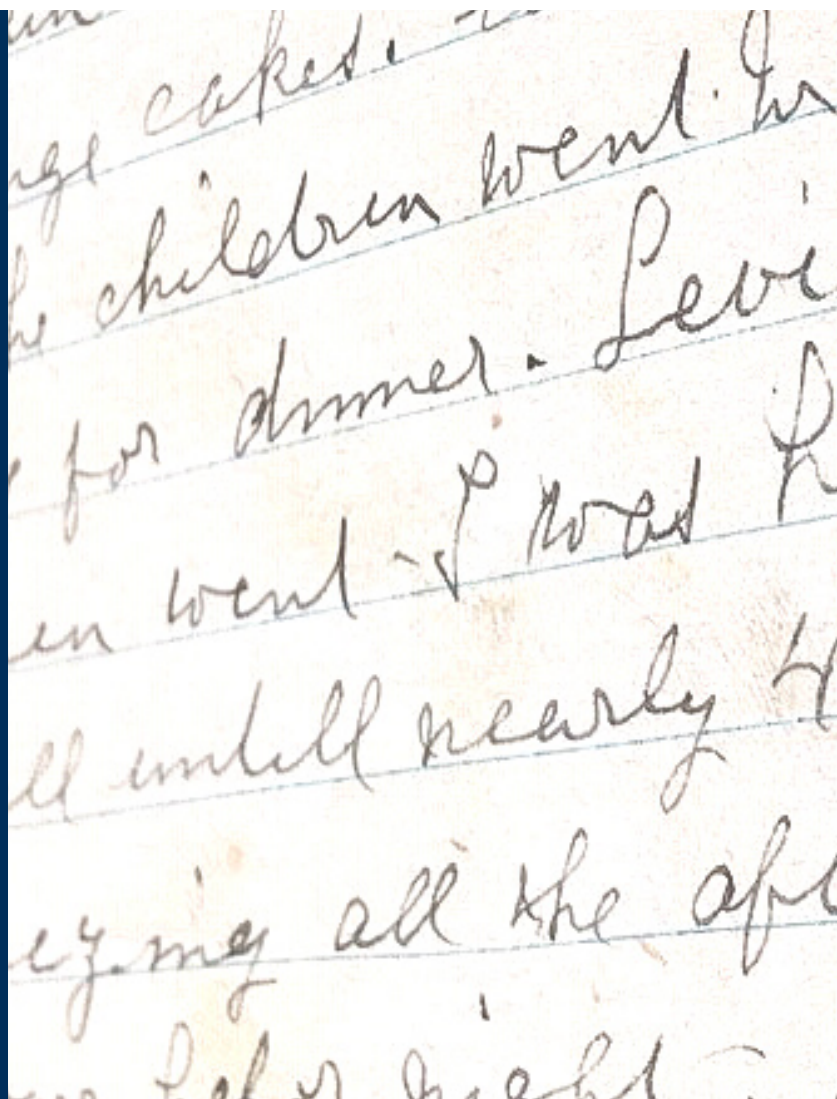 cakes.
children went
for dinner. Levi
en went I was
ll untill nearly 4
ezing all the aft
night